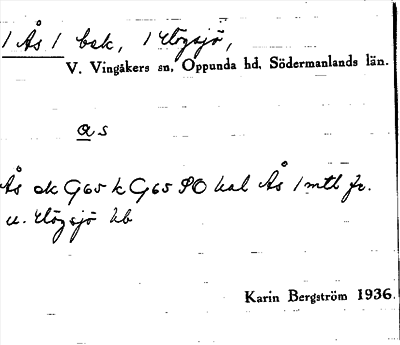 / Ås / bsk, / Högsjö,
V. Vingåkers sn, Oppunda hd, Södermanlands län.
a s
Ås ek G65 k G65 SO kal Ås 1 mtl fr.
u. Högsjö hb
Karin Bergström 1936.